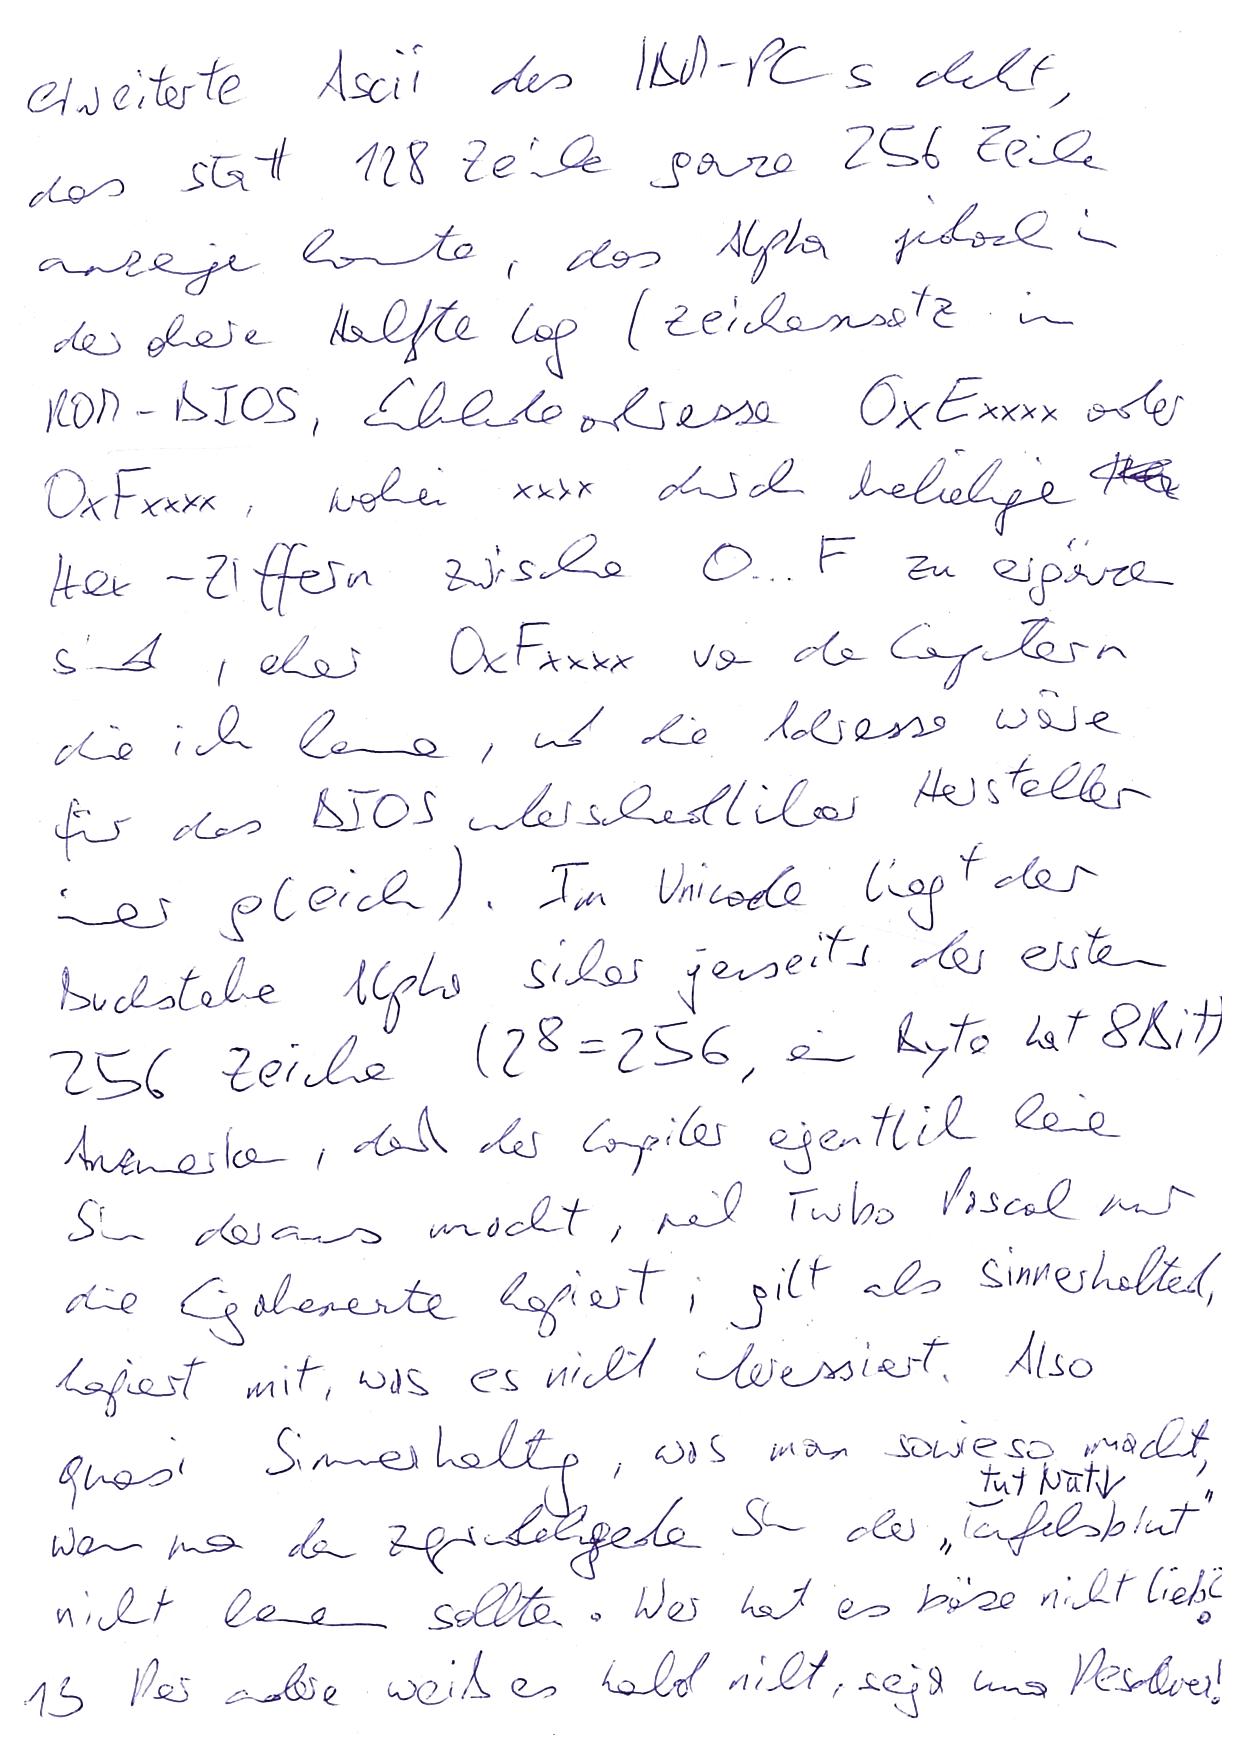 erweiterte Ascii des IBM-PCs denkt,
das statt 128 Zeichen ganze 256 Zeichen
anzeigen konnte, das Alpha jedoch in
der oberen Hälfte lag (Zeichensatz im
ROM-BIOS, Einblendeadresse 0xExxxx oder
0xFxxxx, wobei xxxx durch beliebige
Hex-Ziffern zwischen 0...F zu ergänzen
sind, eher 0xFxxxx von den Computern
die ich kenne, und die Adresse wäre
für das BIOS unterschiedlicher Hersteller
immer gleich). Im Unicode liegt der
Buchstabe Alpha sicher jenseits der ersten
256 Zeichen (2⁸=256, ein Byte hat 8Bit)
Anzumerken, daß der Compiler eigentlich keinen
Sinn daraus macht, weil Turbo Pascal nur
die Eingabewerte kopiert; gilt als sinnerhaltend,
kopiert mit, was es nicht interessiert. Also
quasi Sinnerhaltung, was man sowieso macht,
wenn man den zugrundeliegenden Sinn der „Teufelsbrut"
tut
nicht kennen sollte. Wer hat es böse nicht lieb?
13 Der andere weiß es halt nicht,